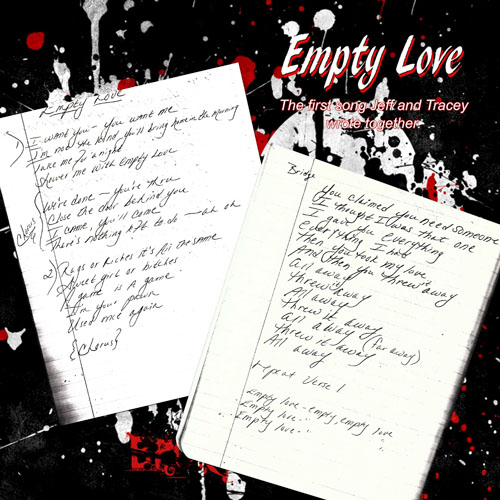 Empty Love
The first song Jeff and Tracey
wrote together
Empty Love
1) I want you - you want me
I'm not the kind you'll bring home in the morning
Take me for a night
Shower me with Empty Love
We're done - you're thru
Chorus Close the door behind you
I came, you'll come
There's nothing left to do - uh oh
2) Rags or Riches it's all the same
Sweet girl or bitches
A game is A game
I'm your pawn
Used once again
{Chorus}
Bridge You claimed you need someone
I thought I was that one
I gave you everything
Everything I had
Then you took my love
And then you threw it away
All away
Threw it away
All away
Threw it away
All away (far away)
Threw it away
All away
Repeat Verse 1
Empty love - empty, empty love
Empty love - "
Empty love - "